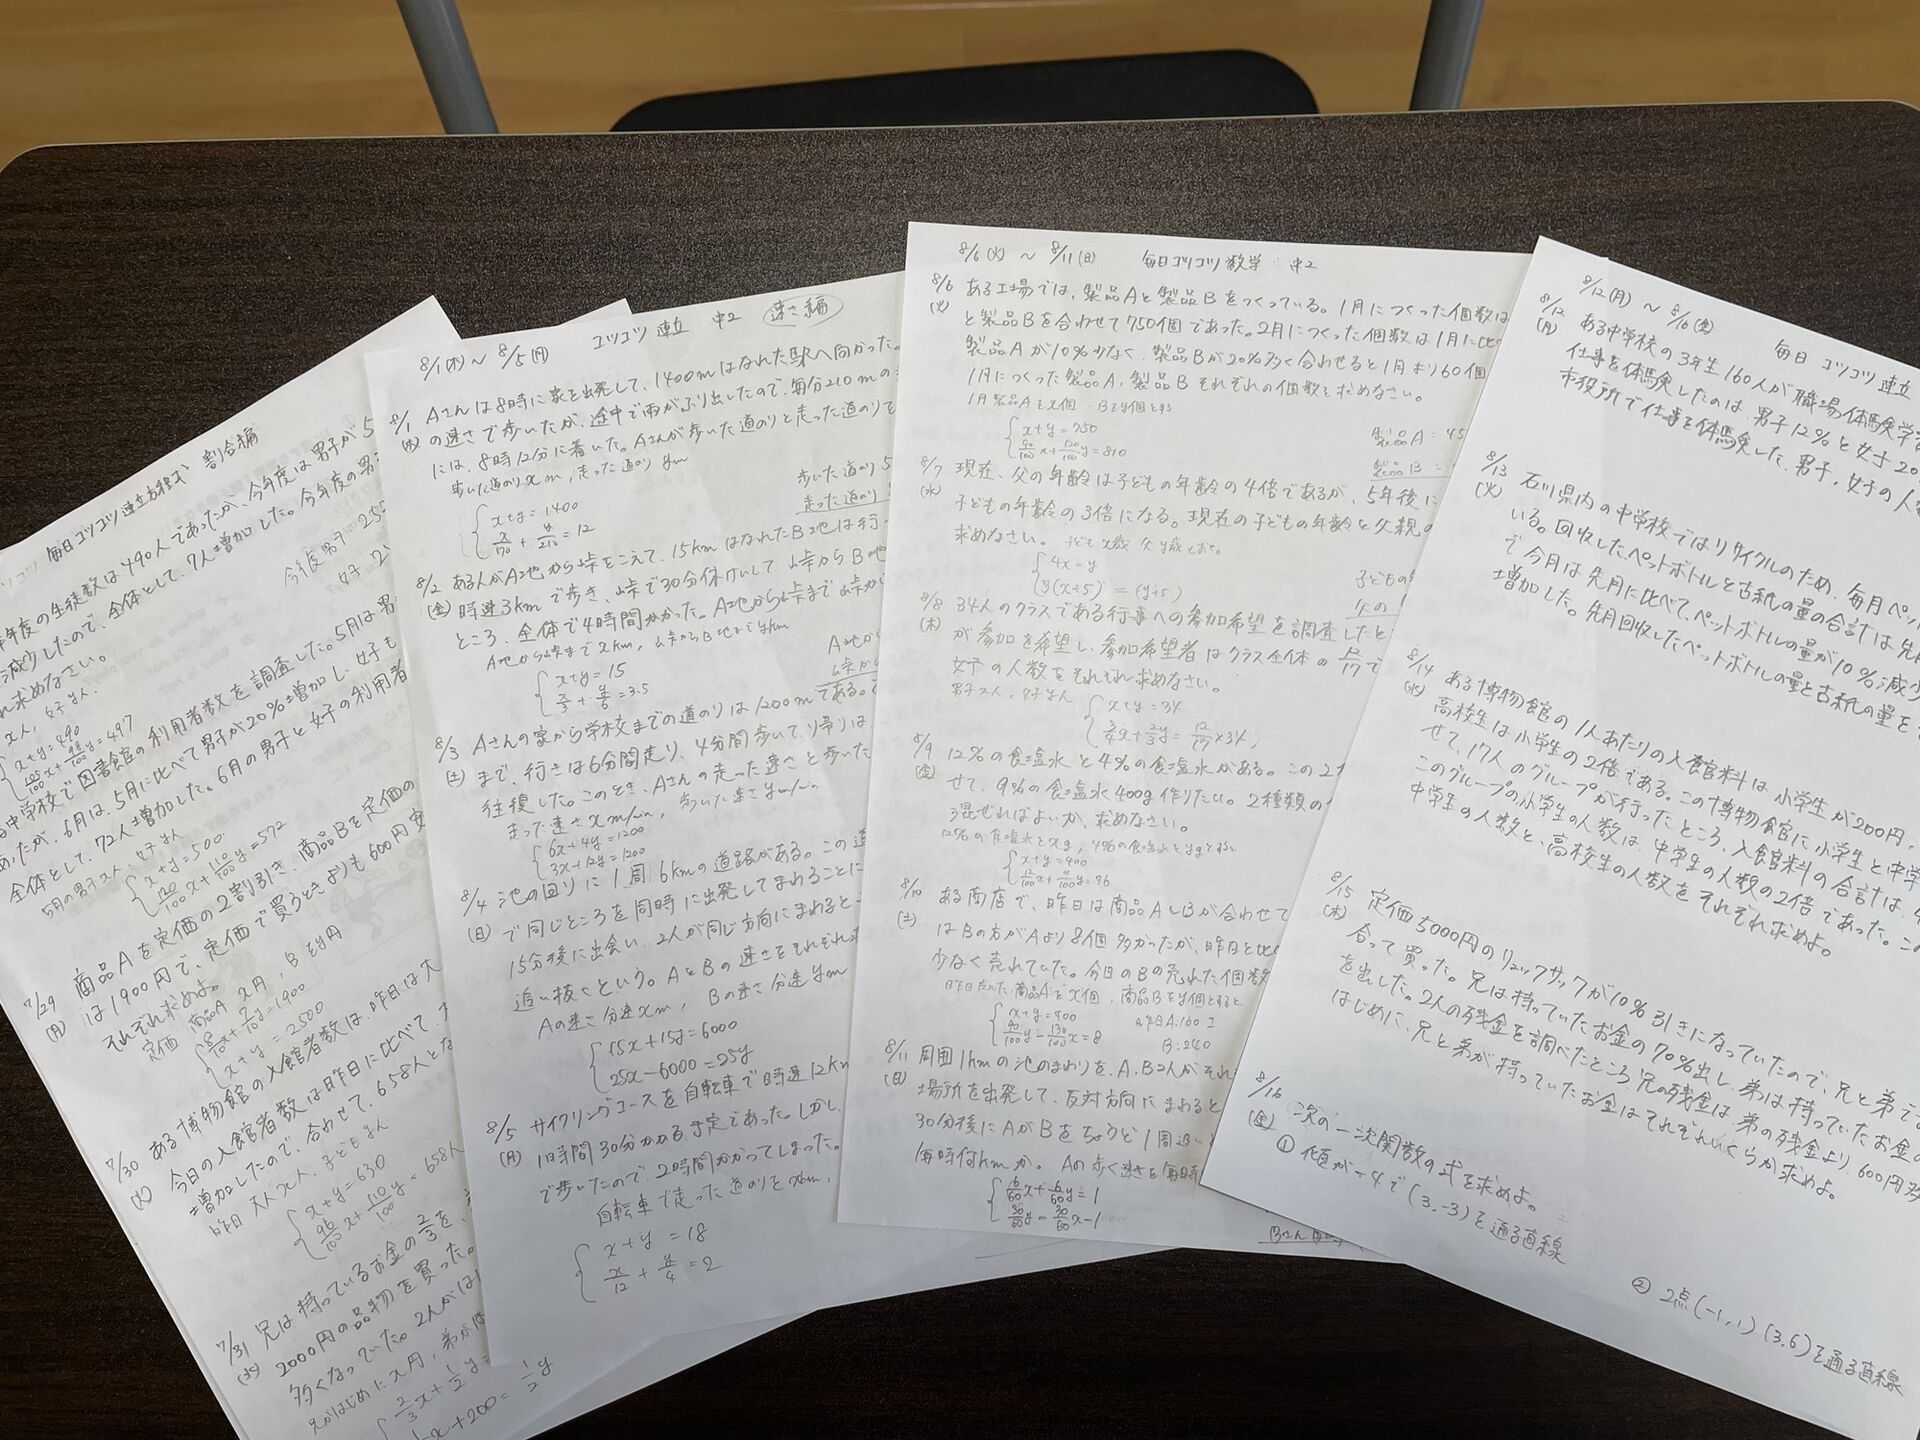 毎日コツコツ連立方程式 割合編
年度の生徒数は490人であったが、今年度は男子が5
減少したので、全体として、7人増加した。今年度の男
れ求めなさい。
x人, 女子y人
x+y=490
105/100x+98/100y=497
今年度男子:25
女子:2
中学校で図書館の利用者数を調査した。5月は男
あったが、6月は、5月に比べて男子が20%増加し、女子も
全体として、72人増加した。6月の男子と女子の利用者
5月の男子x人, 女子y人
x+y=500
120/100x+110/100y=572
7/29 商品Aを定価の2割引き、商品Bを定価の
(月) は1900円で、定価で買うときよりも600円安
それぞれ求めよ。
定価 商品A x円, Bをy円
8/10x+7/10y=1900
x+y=2500
7/30 ある博物館の入館者数は、昨日は大
(火) 今日の入館者数は昨日に比べて、
増加したので、合わせて、658人とな
昨日 大人x人, 子どもy人
x+y=630
110/100y=658
7/31 兄は持っているお金の2/3を、
(水) 2000円の品物を買った。
多くなっていた。2人がは
兄がはじめにx円, 弟が
2/3x+1/2y=
x+200=1/2y
8/1(木)~8/5(月) コツコツ 連立 中2 速さ編
8/1 Aさんは8時に家を出発して、1400mはなれた駅へ向かった。
(木) の速さで歩いたが、途中で雨がふり出したので、毎分210mの
には、8時12分に着いた。Aさんが歩いた道のりと走った道のりを
歩いた道のりxm, 走った道のりym
x+y=1400
x/70+y/210=12
歩いた道のり5
走った道のり
8/2 ある人がA地から峠をこえて、15kmはなれたB地は行
(金) 時速3kmで歩き、峠で30分休けいして、峠からB地
ところ、全体で4時間かかった。A地から峠まで峠から
A地から峠までxkm, 峠からB地までykm
x+y=15
x/3+y/6=3.5
A地から
峠から
8/3 Aさんの家から学校までの道のりは1200mである。
(土) まで、行きは6分間走り、4分間歩いて、帰りは、
往復した。このとき、Aさんの走った速さと歩いた
走った速さxm/min, 歩いた速さym/min
6x+4y=1200
3x+12y=1200
8/4 池の回りに1周6kmの道路がある。この道
(日) で同じところを同時に出発してまわることに
15分後に出会い、2人が同じ方向にまわると
追い抜くという。AとBの速さをそれぞれ
Aの速さ分速xm, Bの速さ分速ym
15x+15y=6000
25x-6000=25y
8/5 サイクリングコースを自転車で時速12km
(月) 1時間30分かかる予定であった。しかし、
で歩いたので、2時間かかってしまった。
自転車で走った道のりをxkm,
x+y=18
x/12+y/4=2
8/6(火) ~ 8/11(日) 毎日コツコツ数学 中2
8/6 ある工場では、製品Aと製品Bをつくっている。1月につくった個数は
(火) と製品Bを合わせて750個であった。2月につくった個数は1月に比
製品Aが10%少なく、製品Bが20%多く合わせると1月より60個
1月につくった製品A, 製品Bそれぞれの個数を求めなさい。
1月製品Aをx個・Bをy個とする
x+y=750
90/100x+120/100y=810
製品A=45
製品B=
8/7 現在、父の年齢は子どもの年齢の4倍であるが、5年後に
(水) 子どもの年齢の3倍になる。現在の子どもの年齢と父親の
求めなさい。 子どもx歳 父y歳とおく。
4x=y
3(x+5)=(y+5)
子どもの
父の
8/8 34人のクラスである行事への参加希望を調査したと
(木) が参加を希望し、参加希望者はクラス全体の12/17で
女子の人数をそれぞれ求めなさい。
男子x人, 女子y人
x+y=34
3/4x+2/3y=12/17×34
8/9 12%の食塩水と4%の食塩水がある。この2
(金) せて、9%の食塩水400g作りたい。2種類の
混ぜればよいか、求めなさい。
12%の食塩水をxg, 4%の食塩水をygとする
x+y=400
12/100x+4/100y=36
8/10 ある商店で、昨日は商品AとBが合わせて
(土) はBの方がAより8個多かったが、昨日と比
少なく売れていた。今日のBの売れた個数
昨日売れた商品Aをx個, 商品Bをy個とすると
x+y=400
90/100y-130/100x=8
昨日A:160
B:240
8/11 周囲1kmの池のまわりを、A, B2人がそれ
(日) 場所を出発して、反対方向にまわると
30分後にAがBをちょうど1周追い
毎時何kmか。 Aの歩く速さを毎時
6/60x+6/60y=1
30/60y-30/60x=1
Bさん
8/12(月) ~ 8/16(金) 毎日コツコツ連立
8/12 ある中学校の3年生160人が職場体験学
(月) 仕事を体験したのは、男子12%と女子20
市役所で仕事を体験した、男子, 女子の人
8/13 石川県内の中学校ではリサイクルのため、毎月ペッ
(火) いる。回収したペットボトルと古紙の量の合計は先月
で今月は先月に比べて、ペットボトルの量が10%減少
増加した。先月回収したペットボトルの量と古紙の量をそ
8/14 ある博物館の1人あたりの入館料は、小学生が200円,
(水) 高校生は小学生の2倍である。この博物館に小学生と中学
せて、17人のグループが行ったところ、入館料の合計は、4
このグループの小学生の人数は、中学生の人数の2倍であった。この
中学生の人数と、高校生の人数をそれぞれ求めよ。
8/15 定価5000円のリュックサックが10%引きになっていたので、兄と弟で
(木) 合って買った。兄は持っていたお金の70%出し、弟は持っていたお金の
を出した。2人の残金を調べたところ兄の残金は、弟の残金より、600円多
はじめに、兄と弟が持っていたお金はそれぞれいくらか求めよ。
8/16 次の一次関数の式を求めよ。
(金) ① 傾が-4で(3,-3)を通る直線
② 2点(-1,1)(3,6)を通る直線